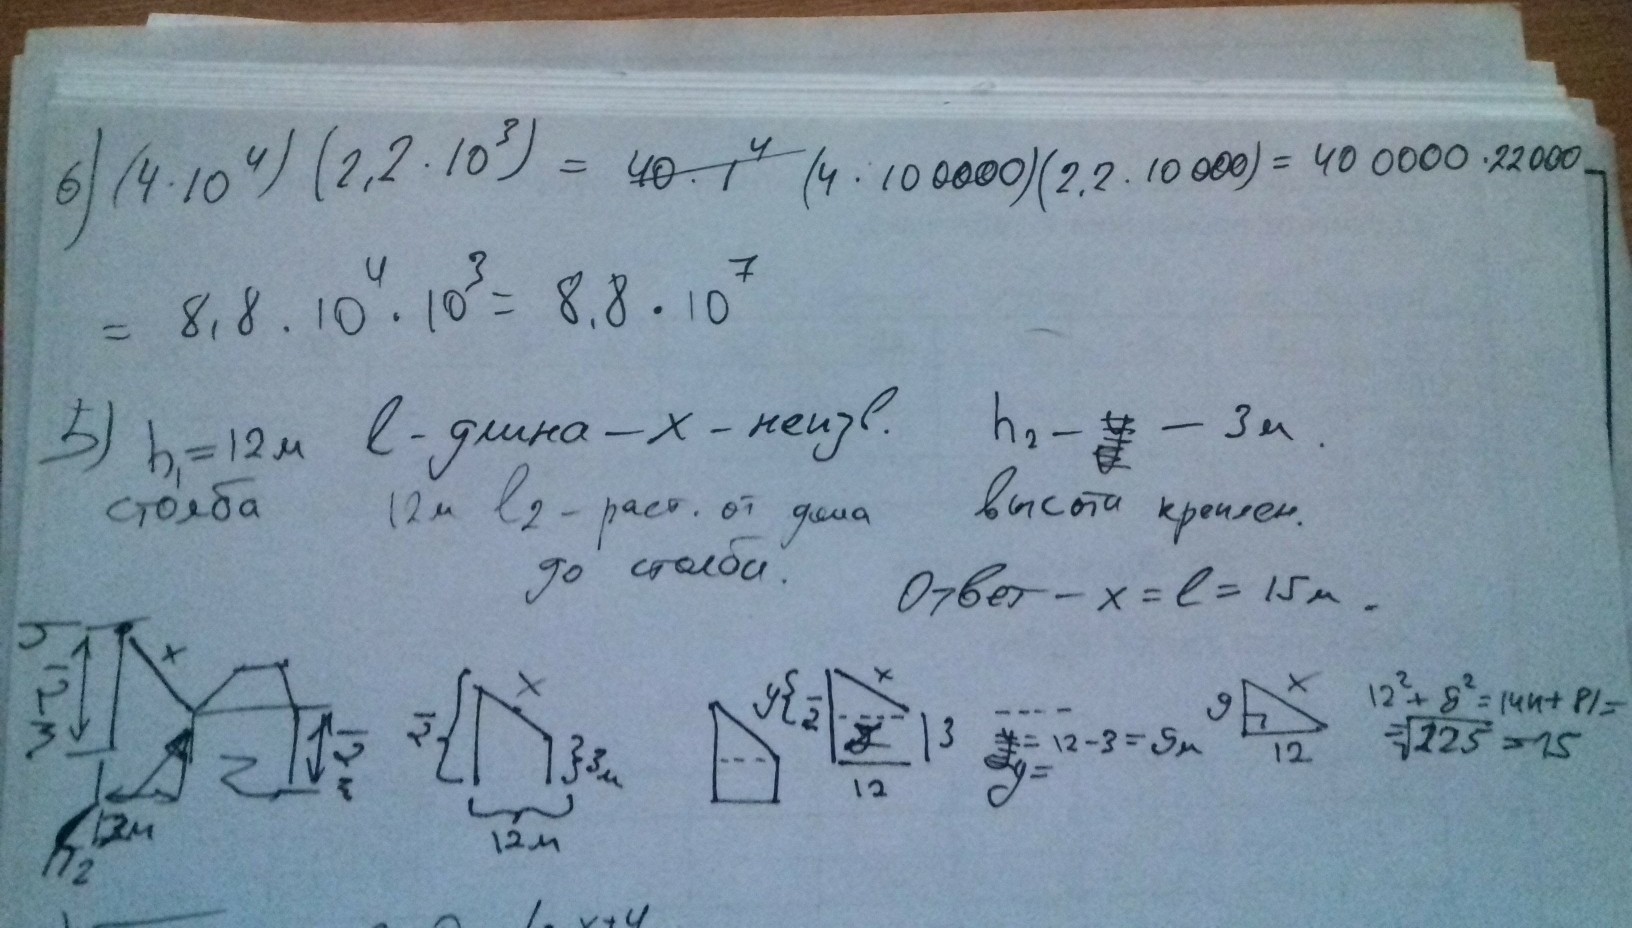 6) (4·10⁴) (2,2·10³) = 40·1⁴ (4·100000)(2,2·10000) = 400000·22000
= 8,8·10⁴·10³ = 8,8·10⁷
5) h₁ = 12м l - длина - x - неизв. h₂ - - 3м.
столба 12м l₂ - раст. от дома высота креплен.
до столба.
Ответ - x = l = 15м.
x
12
3м
12м
h₂
12
x
3м
12м
y
12
x
3
12
y = 12-3 = 9м
9
x
12
12² + 9² = 144 + 81 =
= √225 = 15
x+4